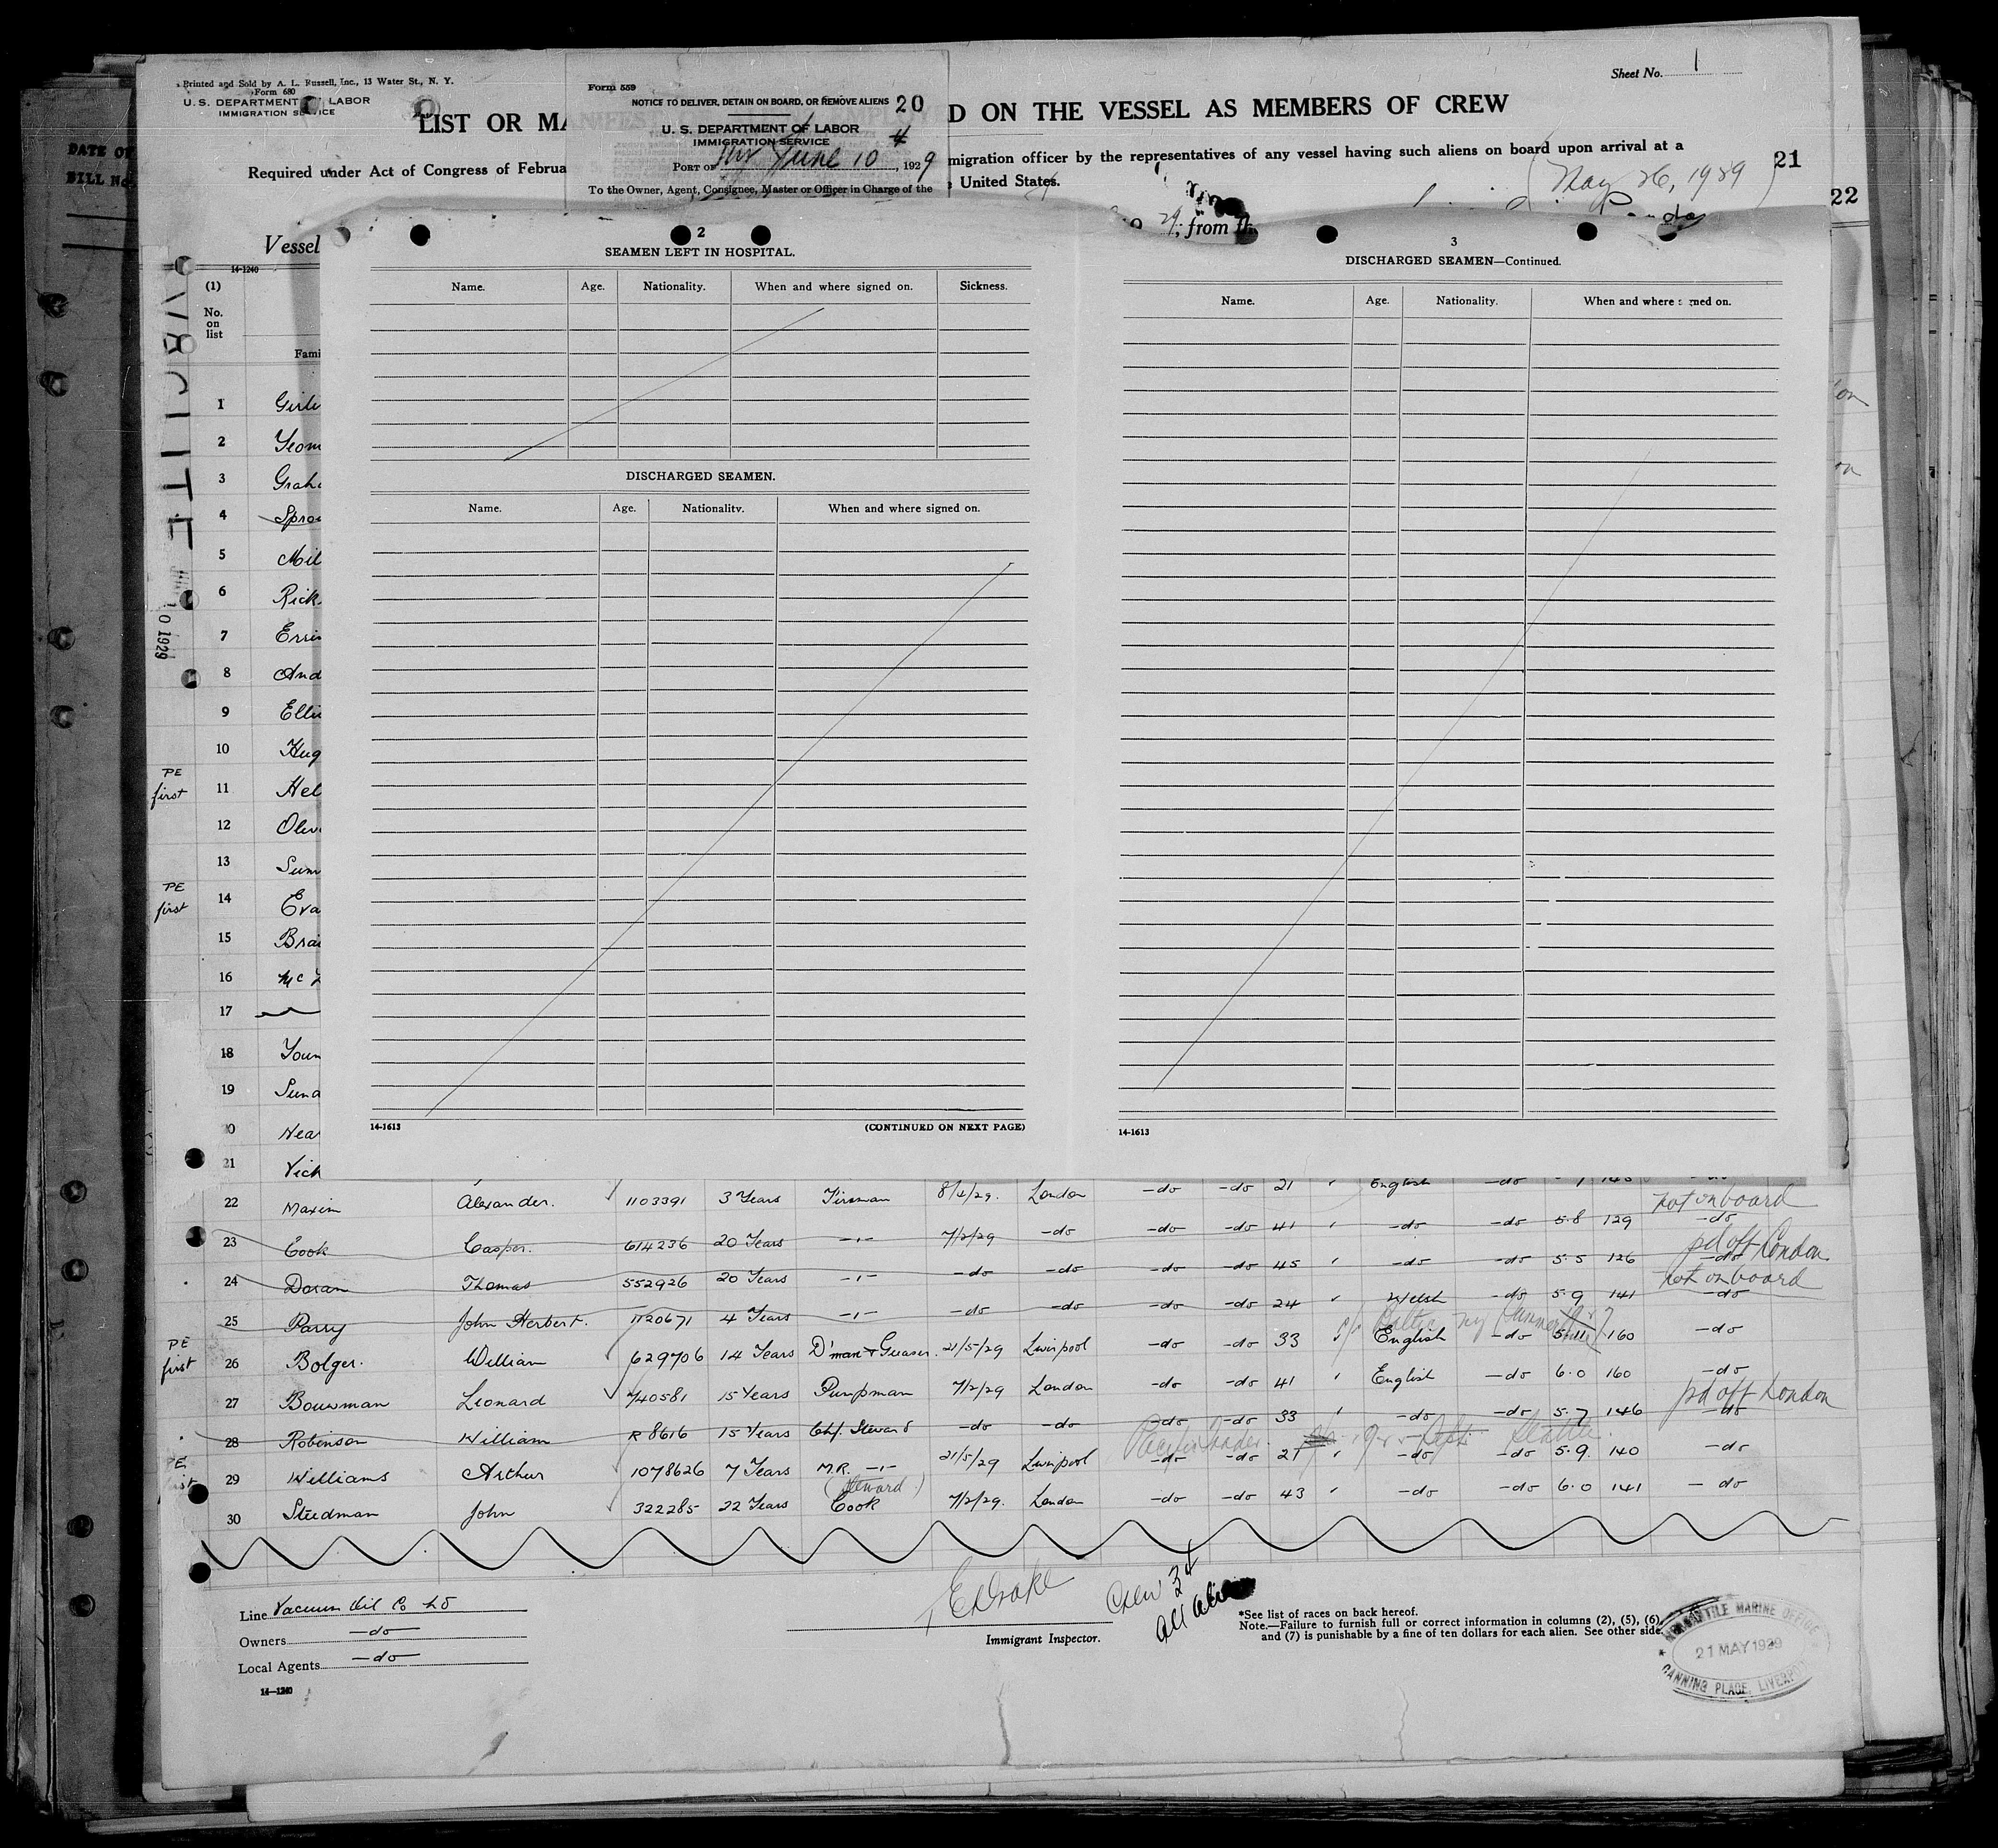 Printed and Sold by A. L. Russell, Inc., 13 Water St., N. Y.
Form 680
U. S. DEPARTMENT LABOR
IMMIGRATION SERVICE
LIST OR MA
D ON THE VESSEL AS MEMBERS OF CREW
Sheet No. 1
Required under Act of Congress of Februa
migration officer by the representatives of any vessel having such aliens on board upon arrival at a
United States.
May 26, 1929
21
22
Form 559
NOTICE TO DELIVER, DETAIN ON BOARD, OR REMOVE ALIENS 20
U. S. DEPARTMENT OF LABOR
IMMIGRATION SERVICE
PORT OF June 10, 1929
To the Owner, Agent, Consignee, Master or Officer in Charge of the
DATE OF
BILL No
Vessel
29, from th
14-1240
(1)
No. on list
Fami
2
SEAMEN LEFT IN HOSPITAL.
Name. Age. Nationality. When and where signed on. Sickness.
DISCHARGED SEAMEN.
Name. Age. Nationality. When and where signed on.
14-1613 (CONTINUED ON NEXT PAGE)
3
DISCHARGED SEAMEN—Continued.
Name. Age. Nationality. When and where signed on.
14-1613
1 Girli
2 Yeom
3 Graha
4 Sprou
5 Mil
6 Rick
7 Errin
8 And
9 Ellio
10 Hug
PE first 11 Hel
12 Oliv
13 Sum
PE first 14 Eva
15 Brai
16 Mc
17
18 Youn
19 Suna
0 Hea
21 Vick
22 Maxim Alexander. 1103391 3 Years Fireman 8/4/29. London -do -do 21 English -do
23 Cook Casper. 614236 20 Years -"- 7/2/29 -do -do -do 41 -do -do 5.8 129 -do not on board
24 Doran Thomas 552926 20 Years -"- -do -do -do -do 45 -do -do 5.5 126 -do pd off London
25 Parry John Herbert. 1120671 4 Years -"- -do -do -do -do 24 Welsh -do 5.9 141 -do not on board
PE first 26 Bolger. William 629706 14 Years D'man & Greaser. 21/5/29 Liverpool -do -do 33 English -do 5.11 160 -do
27 Bouwman Leonard 740581 15 Years Pumpman 7/2/29 London -do -do 41 English -do 6.0 160 -do
28 Robinson William R 8616 15 Years Chf. Steward -do -do -do -do 33 -do -do 5.7 146 -do pd off London
PE first 29 Williams Arthur 1078626 7 Years M.R. -"- (Steward.) 21/5/29 Liverpool -do -do 21 -do -do 5.9. 140 -do
30 Steedman John 322285 22 Years Cook 7/2/29. London -do -do 43 -do -do 6.0 141 -do
Line Vacuum Oil Co Ld
Owners -do
Local Agents -do
14—1240
E Drake
Immigrant Inspector.
Crew 34
all alien
*See list of races on back hereof.
Note.—Failure to furnish full or correct information in columns (2), (5), (6), and (7) is punishable by a fine of ten dollars for each alien. See other side.
MERCANTILE MARINE OFFICE
21 MAY 1929
CANNING PLACE, LIVERPOOL